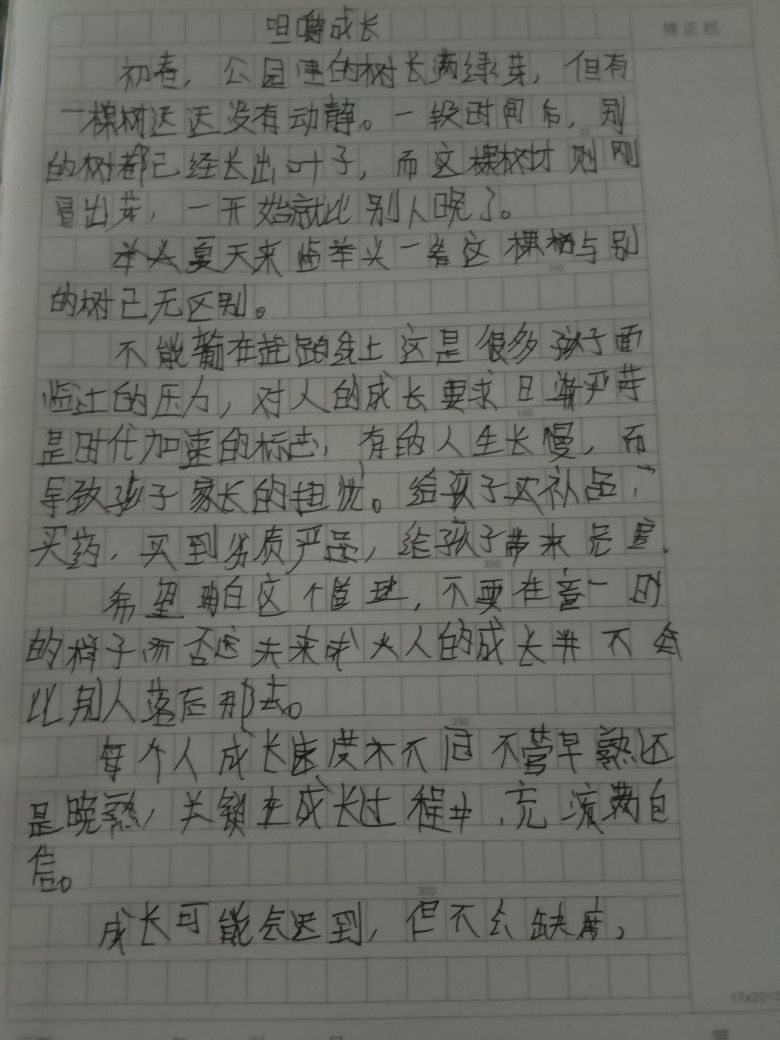 咀嚼成长
修正栏
初春，公园里的树长满绿芽，但有
一棵树迟迟没有动静。一段时间后，别
的树都已经长出叶子，而这棵树才刚刚
冒出芽，一开始就比别人晚了。
夏天来临举头一看这棵树与别
的树已无区别。
不能输在起跑线上这是很多孩子面
临过的压力，对人的成长要求日渐严苛
是时代加速的标志，有的人生长慢，而
导致孩子家长的担忧。给孩子买补品，
买药，买到劣质产品，给孩子带来危害。
希望明白这个道理，不要在意一时
的样子而否定未来 人的成长并不会
比别人落后 
每个人成长速度 不同不管早熟还
是晚熟，关键在成长过程中，充满自
信。
成长可能会迟到，但不会缺席，
50
100
150
200
250
300